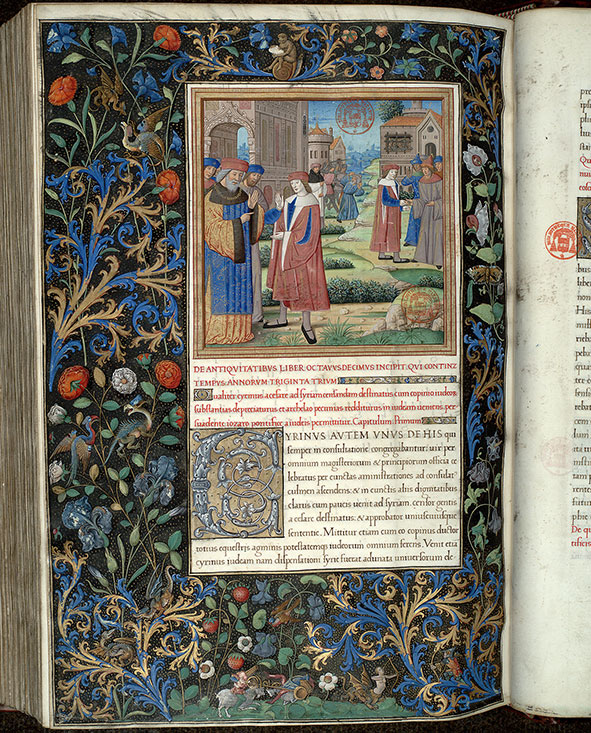 DE ANTIQVITATIBVS LIBER OCTAVVS DECIMVS INCIPIT QVI CONTINZ
TEMPVS ANNORVM TRIGINTA TRIVM
Qualiter cyrenius a cesare ad syriam censendam destinatus cum copinio iudeorum
substantias depreciaturus et archelao pecunias redditurus in iudeam ueniens, per
suadente iozaro pontifice a iudeis permittitur. Capitulum Primum
CYRINVS AVTEM VNVS DE HIS qui
semper in consultatione congregabantur: uir per
omnium magisteriorum & principiorum officia ce
lebratus per cunctas aministrationes ad consulat
culmen ascendens, & in cunctis aliis dignitatibus
clarus cum paucis uenit ad syriam. censor gentis
a cesare destinatus: & approbator uniuscuiusque
sententie. Mittitur etiam cum eo copinus ductor
totius equestris agminis potestatemque iudeorum omnium ferens. Venit etia
cyrinus iudeam nam dispensationi syrie fuerat adunata uniuersorum de